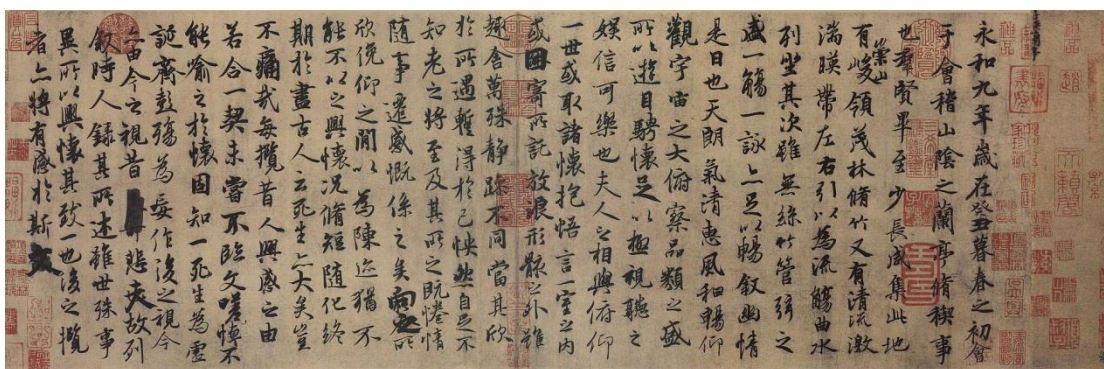 永和九年歲在癸丑暮春之初會
于會稽山陰之蘭亭脩稧事
也羣賢畢至少長咸集此地
有崇山峻領茂林脩竹又有清流激
湍暎帶左右引以為流觴曲水
列坐其次雖無絲竹管弦之
盛一觴一詠亦足以暢叙幽情
是日也天朗氣清惠風和暢仰
觀宇宙之大俯察品類之盛
所以遊目騁懷足以極視聽之
娛信可樂也夫人之相與俯仰
一世或取諸懷抱悟言一室之內
或因寄所託放浪形骸之外雖
趣舍萬殊静躁不同當其欣
於所遇暫得於己怏然自足不
知老之將至及其所之既惓情
隨事遷感慨係之矣向之所
欣俛仰之閒以為陳迹猶不
能不以之興懷况脩短隨化終
期於盡古人云死生亦大矣豈
不痛哉每攬昔人興感之由
若合一契未嘗不臨文嗟悼不
能喻之於懷固知一死生為虛
誕齊彭殤為妄作後之視今
亦由今之視昔悲夫故列
叙時人錄其所述雖世殊事
異所以興懷其致一也後之攬
者亦將有感於斯文